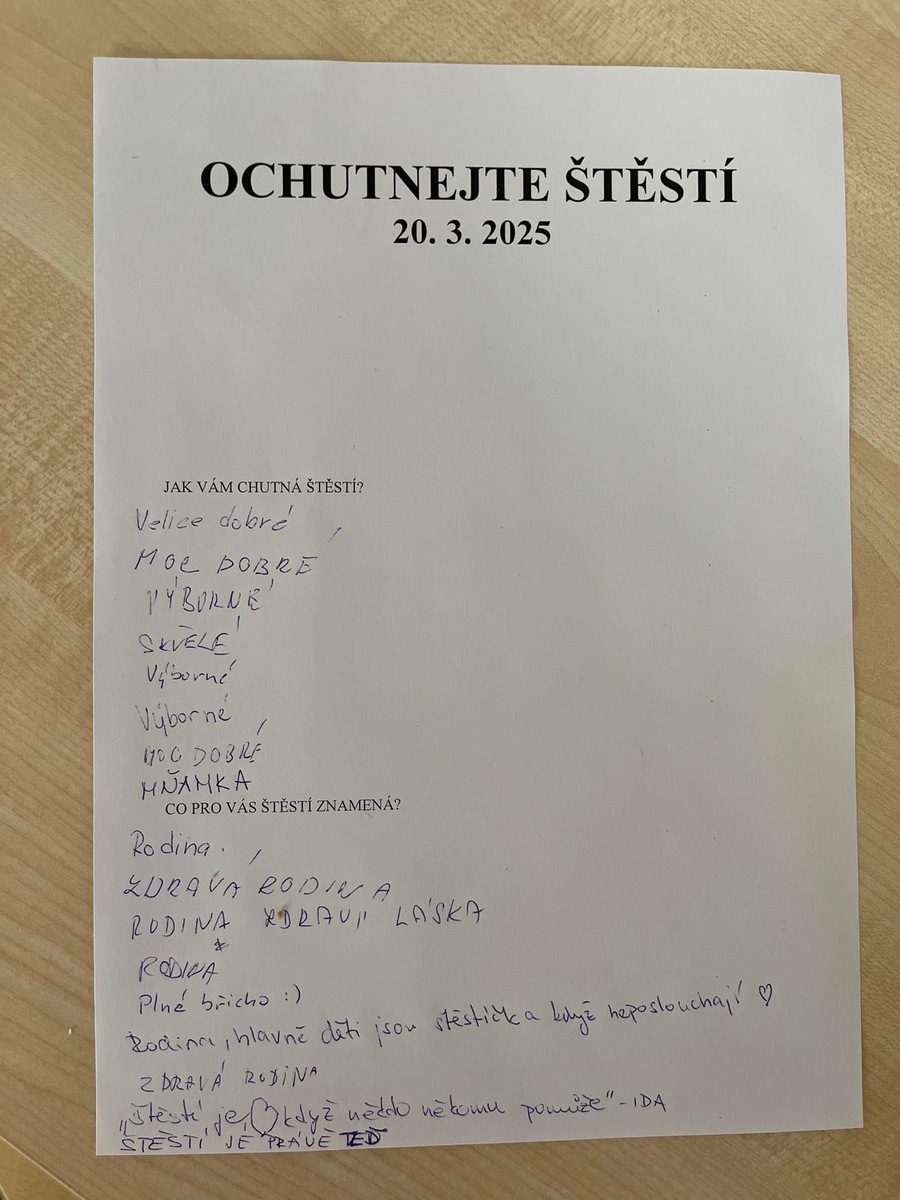 OCHUTNEJTE ŠTĚSTÍ
20. 3. 2025
JAK VÁM CHUTNÁ ŠTĚSTÍ?
Velice dobré
MOC DOBRÉ
VÝBORNÉ
SKVĚLÉ
Výborné
Výborné
MOC DOBRÉ
MŇAMKA
CO PRO VÁS ŠTĚSTÍ ZNAMENÁ?
Rodina.
ZDRAVÁ RODINA
RODINA ZDRAVÍ LÁSKA
RODINA
Plné břicho :)
Rodina, hlavně děti jsou štěstíčka když neposlouchají ♡
ZDRAVÁ RODINA
„Štěstí je když někdo někomu pomůže" - IDA
ŠTĚSTÍ JE PRÁVĚ TEĎ